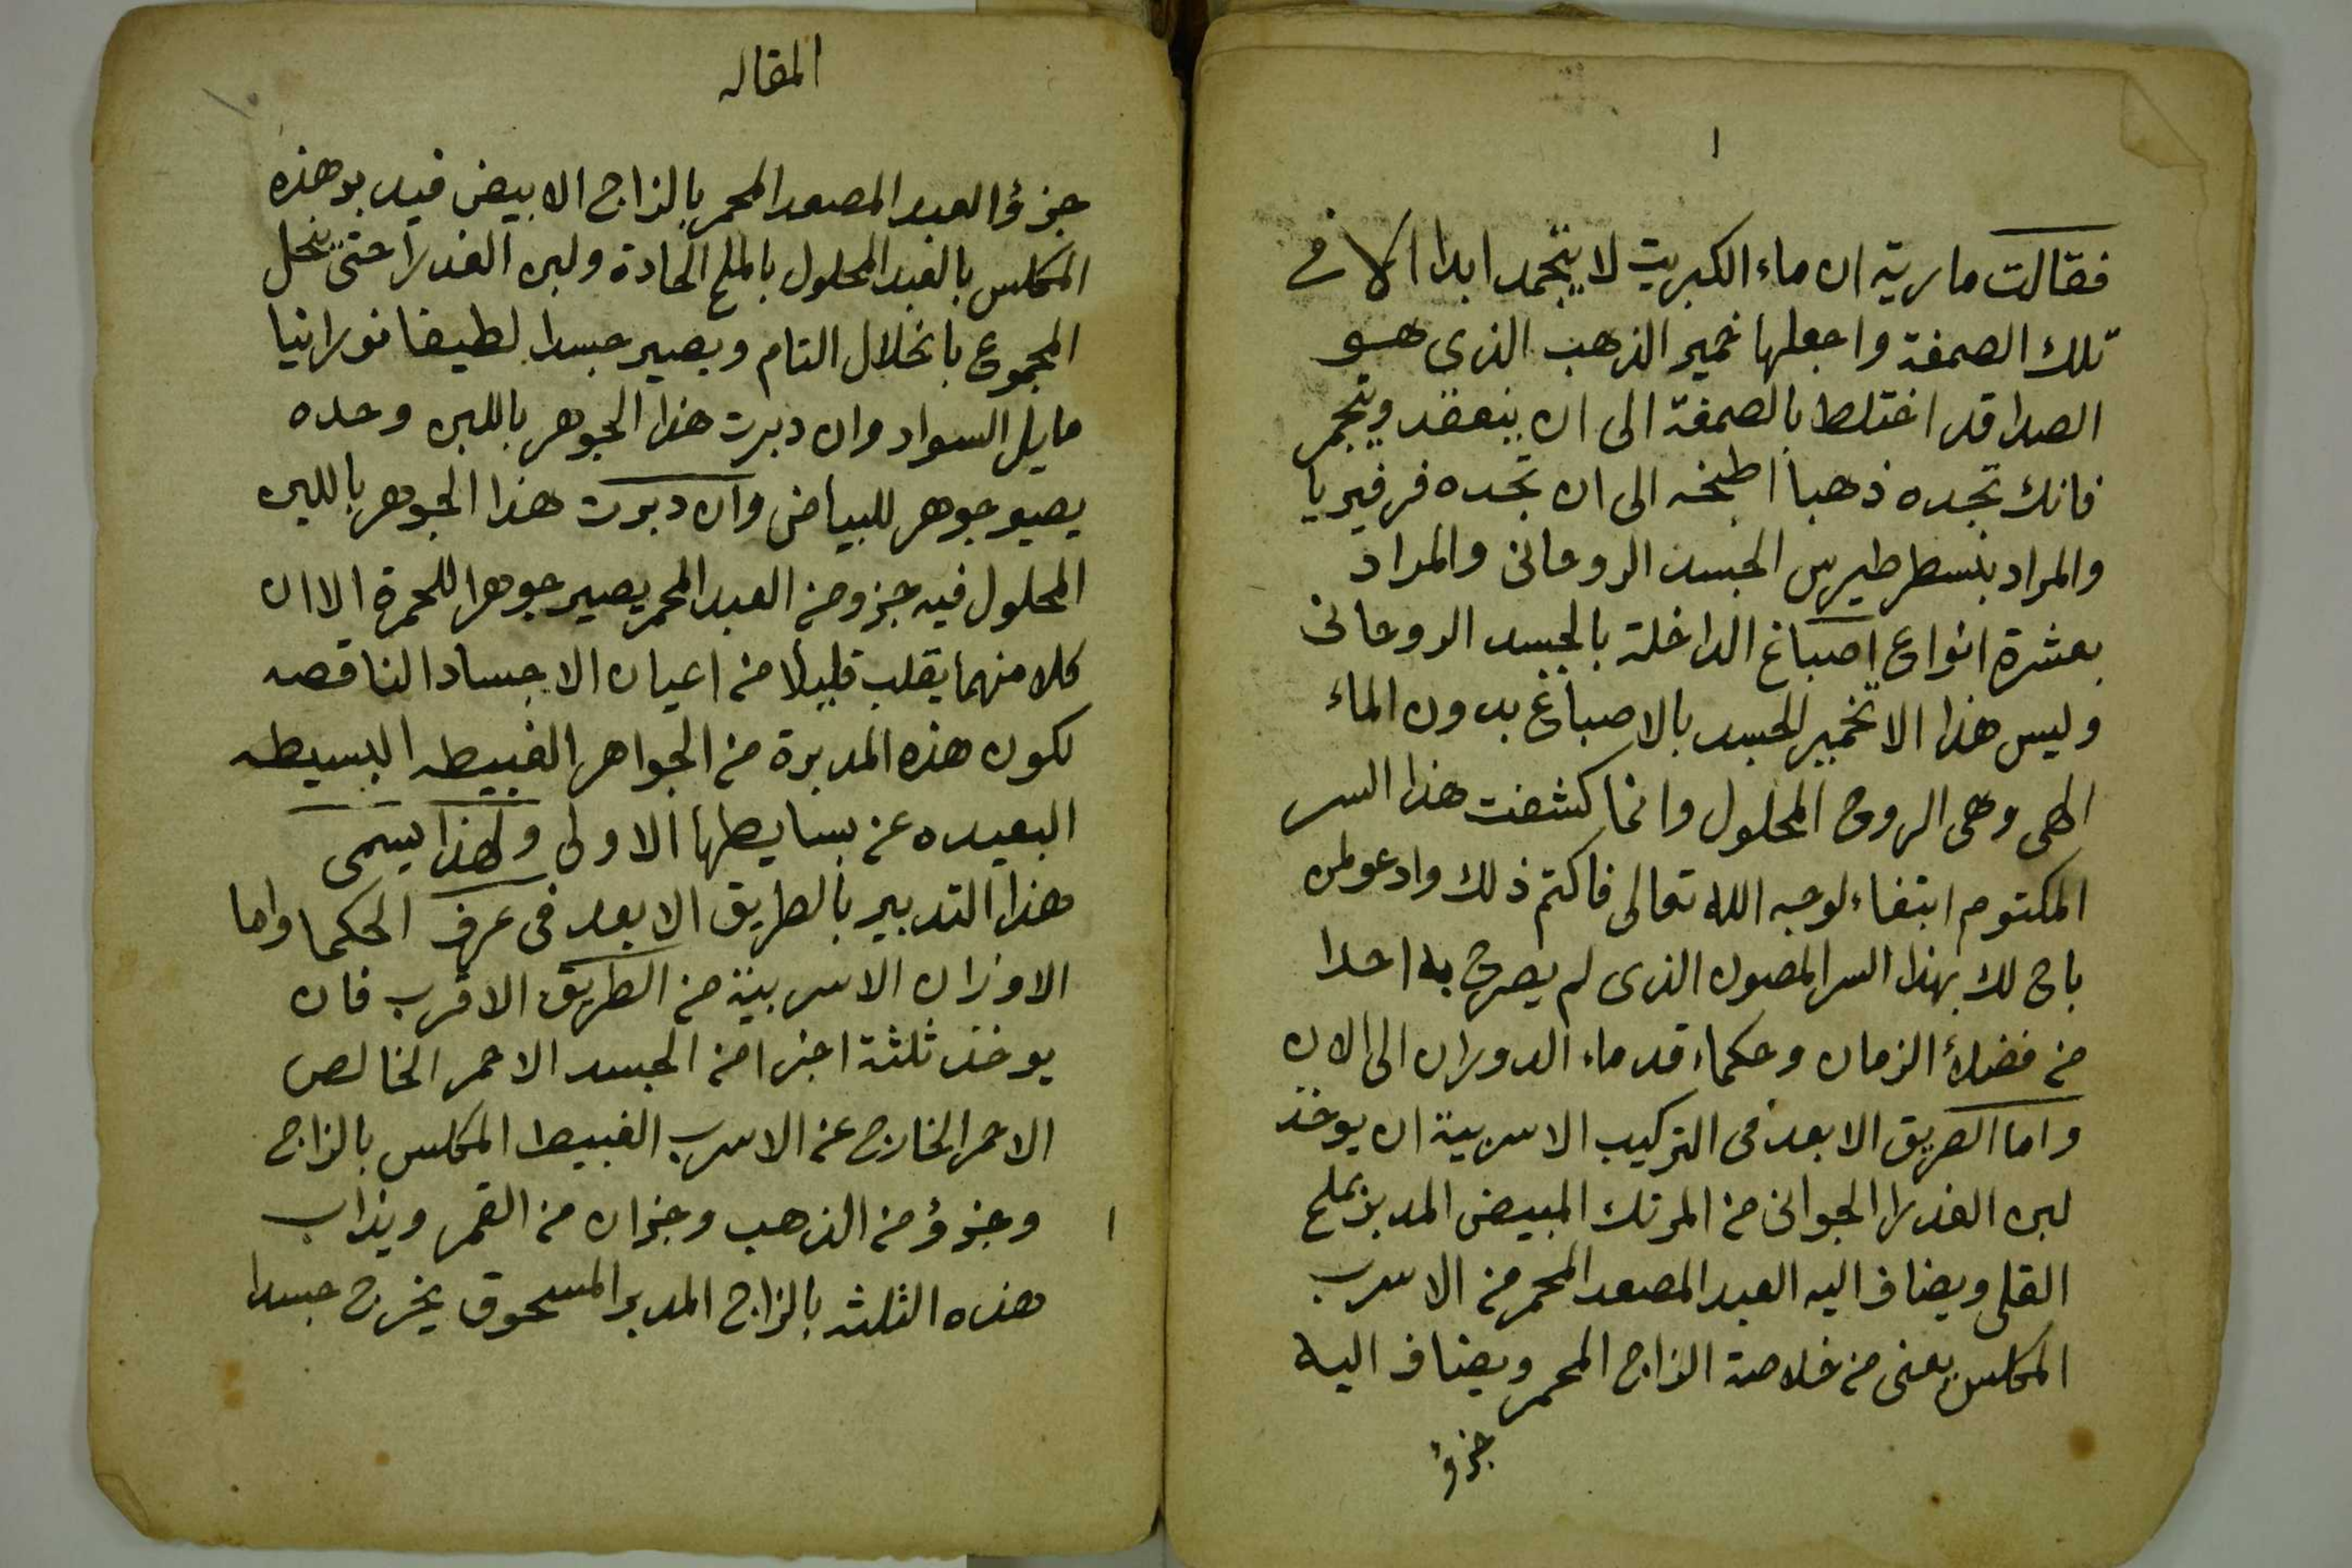 ١
فقالت مارية ان ماء الكبريت لا ينجمد ابدا الا في
تلك الصمغة واجعلها خمير الذهب الذى هو
الصدا قد اختلط بالصمغة الى ان ينعقد ويتجمر
فانك تجده ذهبا اطبخه الى ان تجده فرفيريا
والمراد بنسطرطيرس الجسد الروحانى والمراد
بعشرة انواع اصباغ الداخلة بالجسد الروحانى
وليس هذا الا تخمير للجسد بالاصباغ بدون الماء
الهى وهى الروح المحلول وانما كشفت هذا السر
المكتوم ابتغاء لوجه الله تعالى فاكتم ذلك وادعو لمن
باح لك بهذا السر المصون الذى لم يصرح به احدا
من فضلأ الزمان وحكماء قدماء الدوران الى الان
واما الطريق الابعد فى التركيب الاسربية ان يوخذ
لبن العذرا الجوانى من المرتك المبيض المدبر بملح
القلى ويضاف اليه العبد المصعد المحمر من الاسرب
المكلس يعنى من خلاصة الزاج المحمر ويضاف اليه
جزؤ
المقاله
جزؤ العبد المصعد المحمر بالزاج الابيض فيدبر هذه
المكلس بالعبد المحلول بالملح الحادة ولبن العذرا حتى ينحل
المجموع بانحلال التام ويصير جسدا لطيفا نورانيا
مايل السواد وان دبرت هذا الجوهر باللبن وحده
يصير جوهر للبياض وان دبرت هذا الجوهر باللبن
المحلول فيه جزو من العبد المحمر يصير جوهرا للحمرة الا ان
كلا منهما يقلب قليلا من اعيان الاجساد الناقصه
لكون هذه المدبرة من الجواهر الغبيطه البسيطه
البعيده عن بسايطها الاولى ولهذا يسمى
هذا التدبير بالطريق الابعد فى عرف الحكما واما
الاوزان الاسربية من الطريق الاقرب فان
يوخذ ثلثة اجزا من الجسد الاحمر الخالص
الاحمر الخارج عن الاسرب الغبيط المكلس بالزاج
وجزؤ من الذهب وجزان من القمر ويذاب
١
هذه الثلثه بالزاج المدبر المسحوق يخرج جسدا